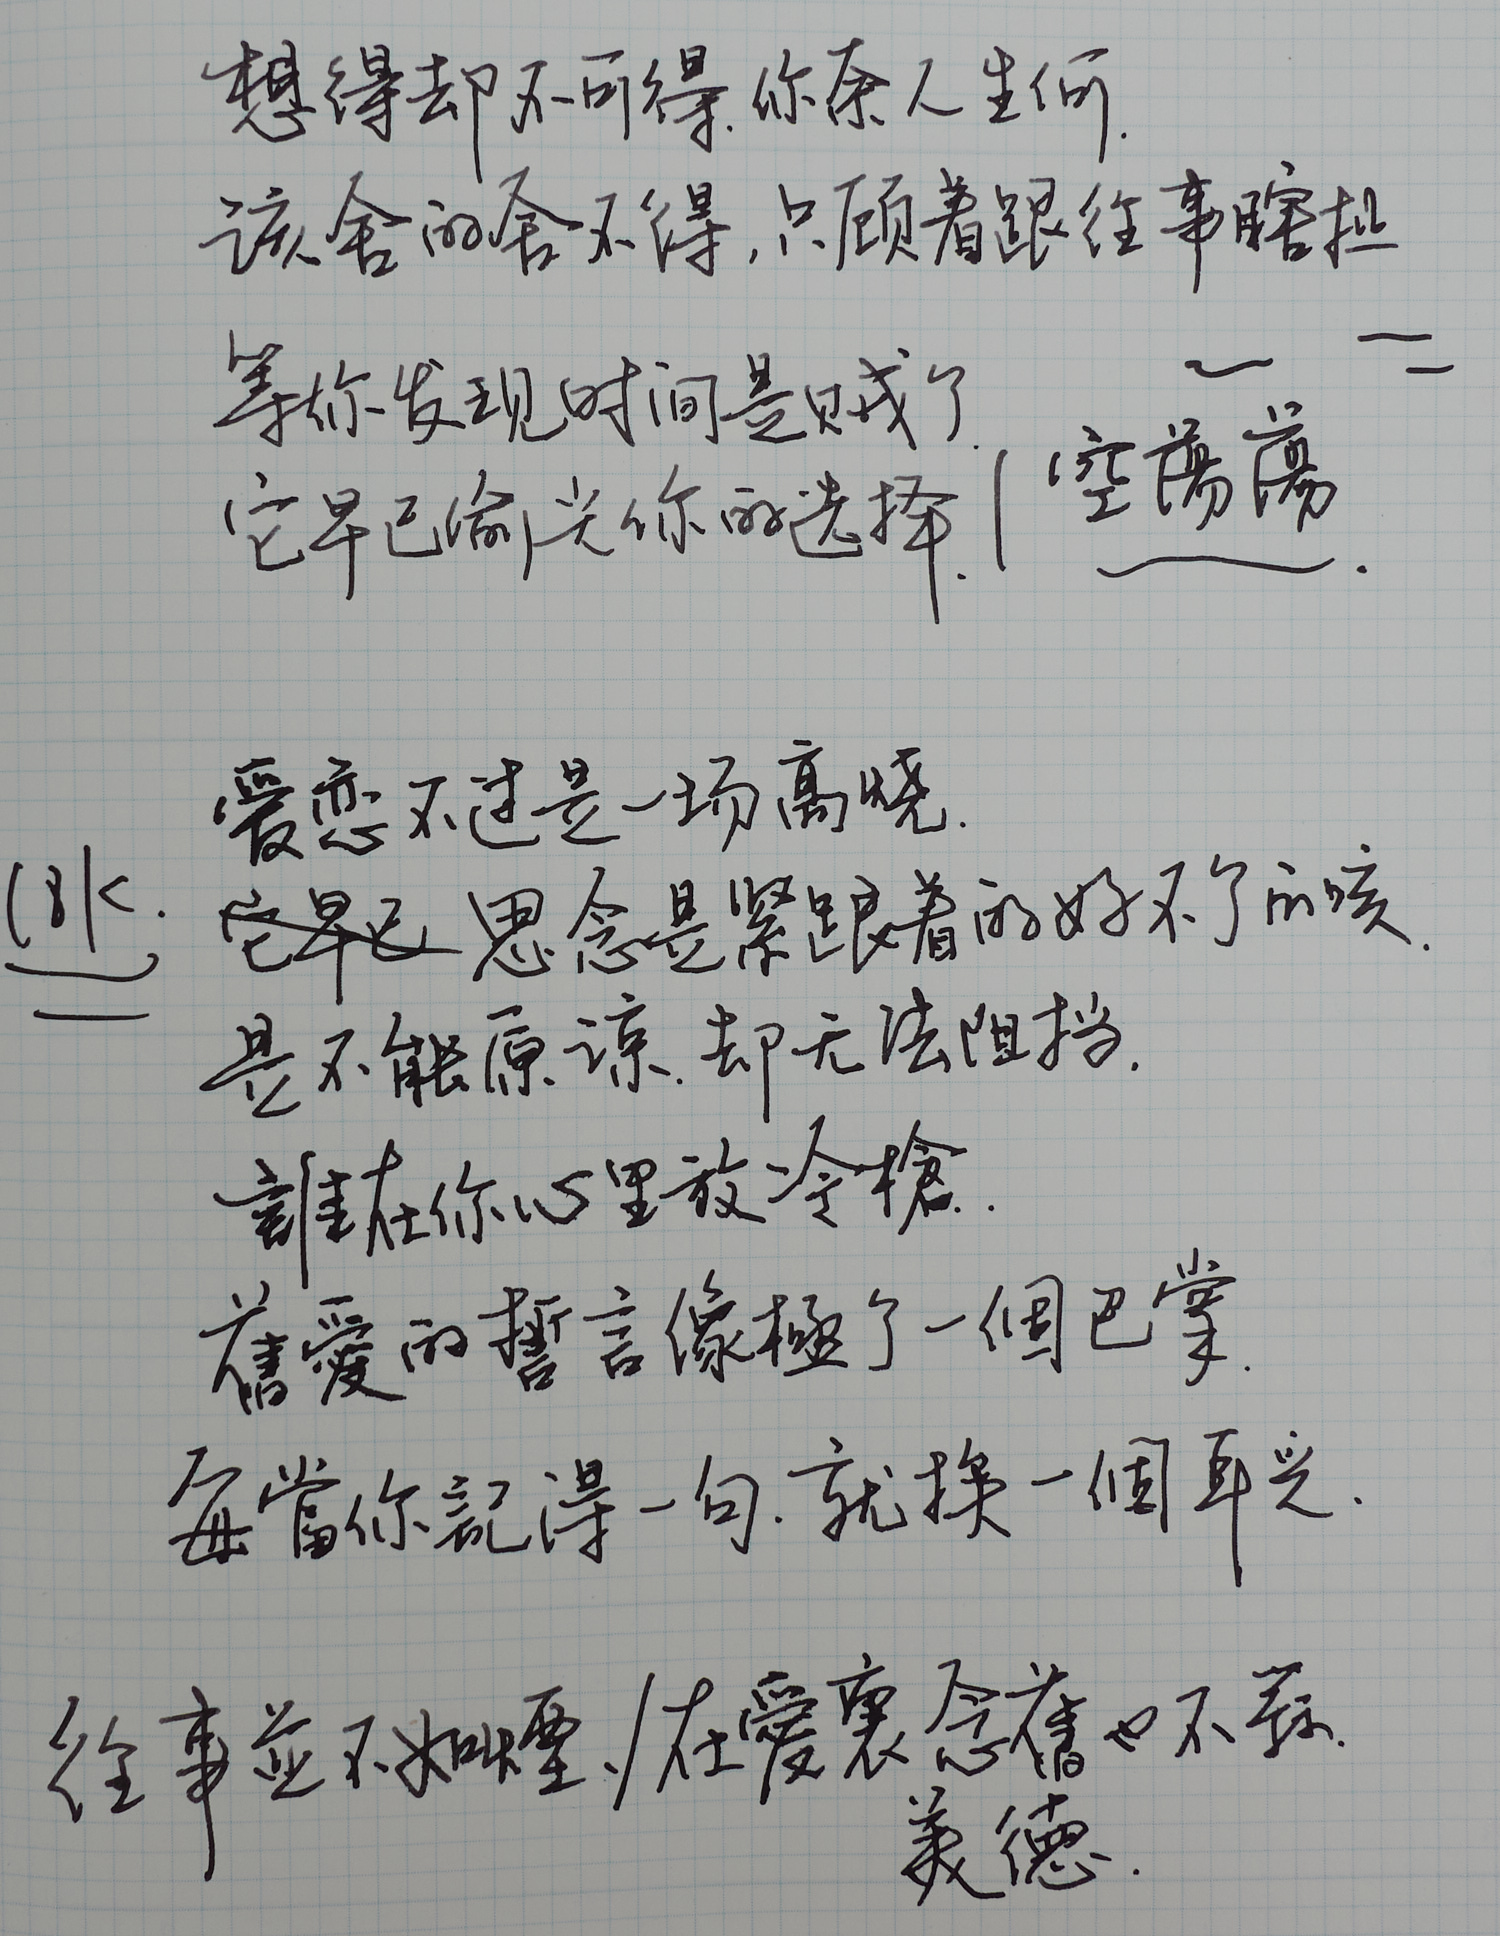 想得却不可得.你奈人生何.
该舍的舍不得,只顾着跟往事瞎扯
等你发现时间是贼了.
它早已偷光你的选择.
空蕩蕩.
爱恋不过是一场高烧.
它早已 思念是紧跟着的好不了的咳.
是不能原谅.却无法阻挡.
誰在你心里放冷槍..
舊愛的誓言像極了一個巴掌.
每當你記得一句.就挨一個耳光.
往事並不如煙./在愛裏念舊也不算.
美德.